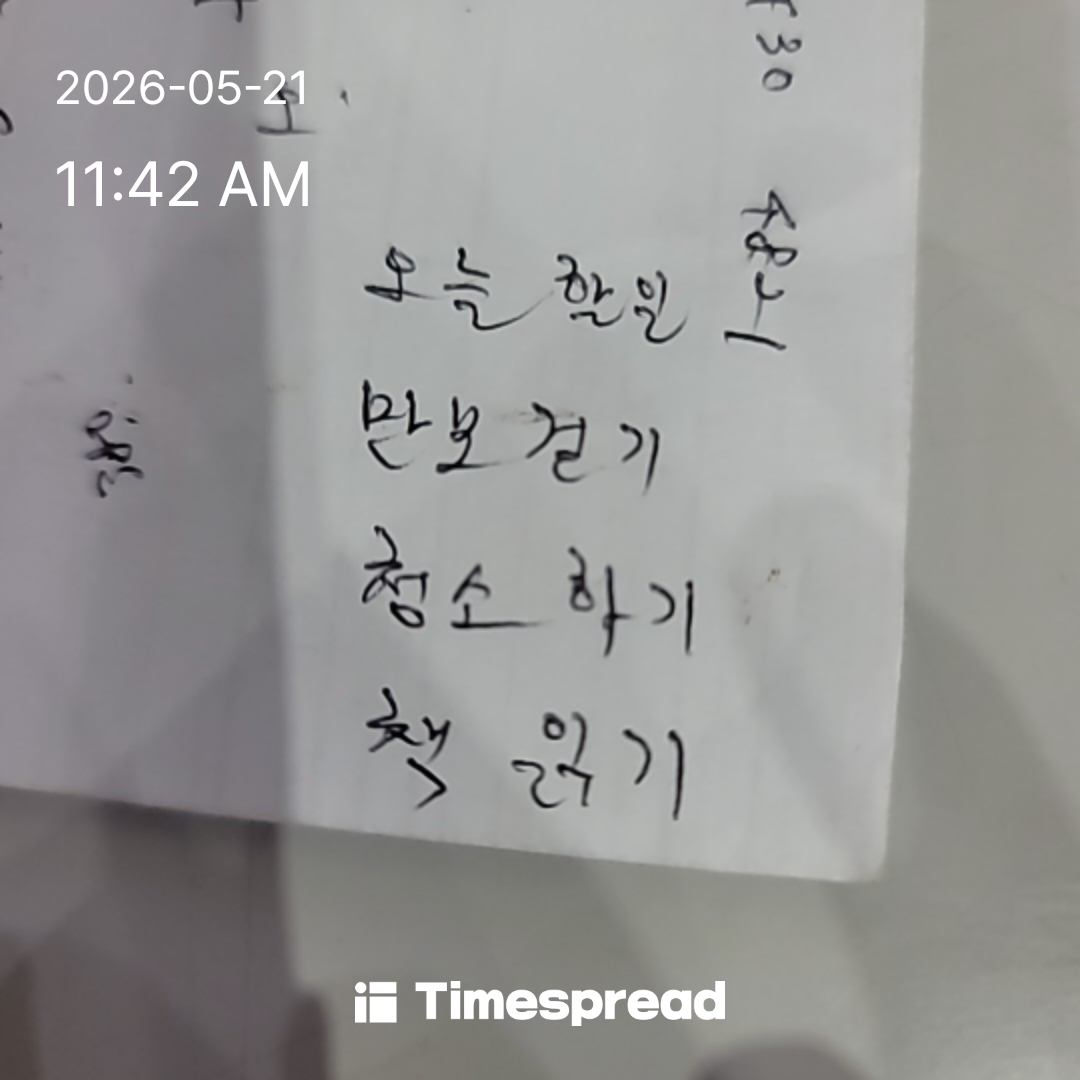 2026-05-21
11:42 AM
30
오늘 할일
만보 걷기
청소 하기
책 읽기
Timespread